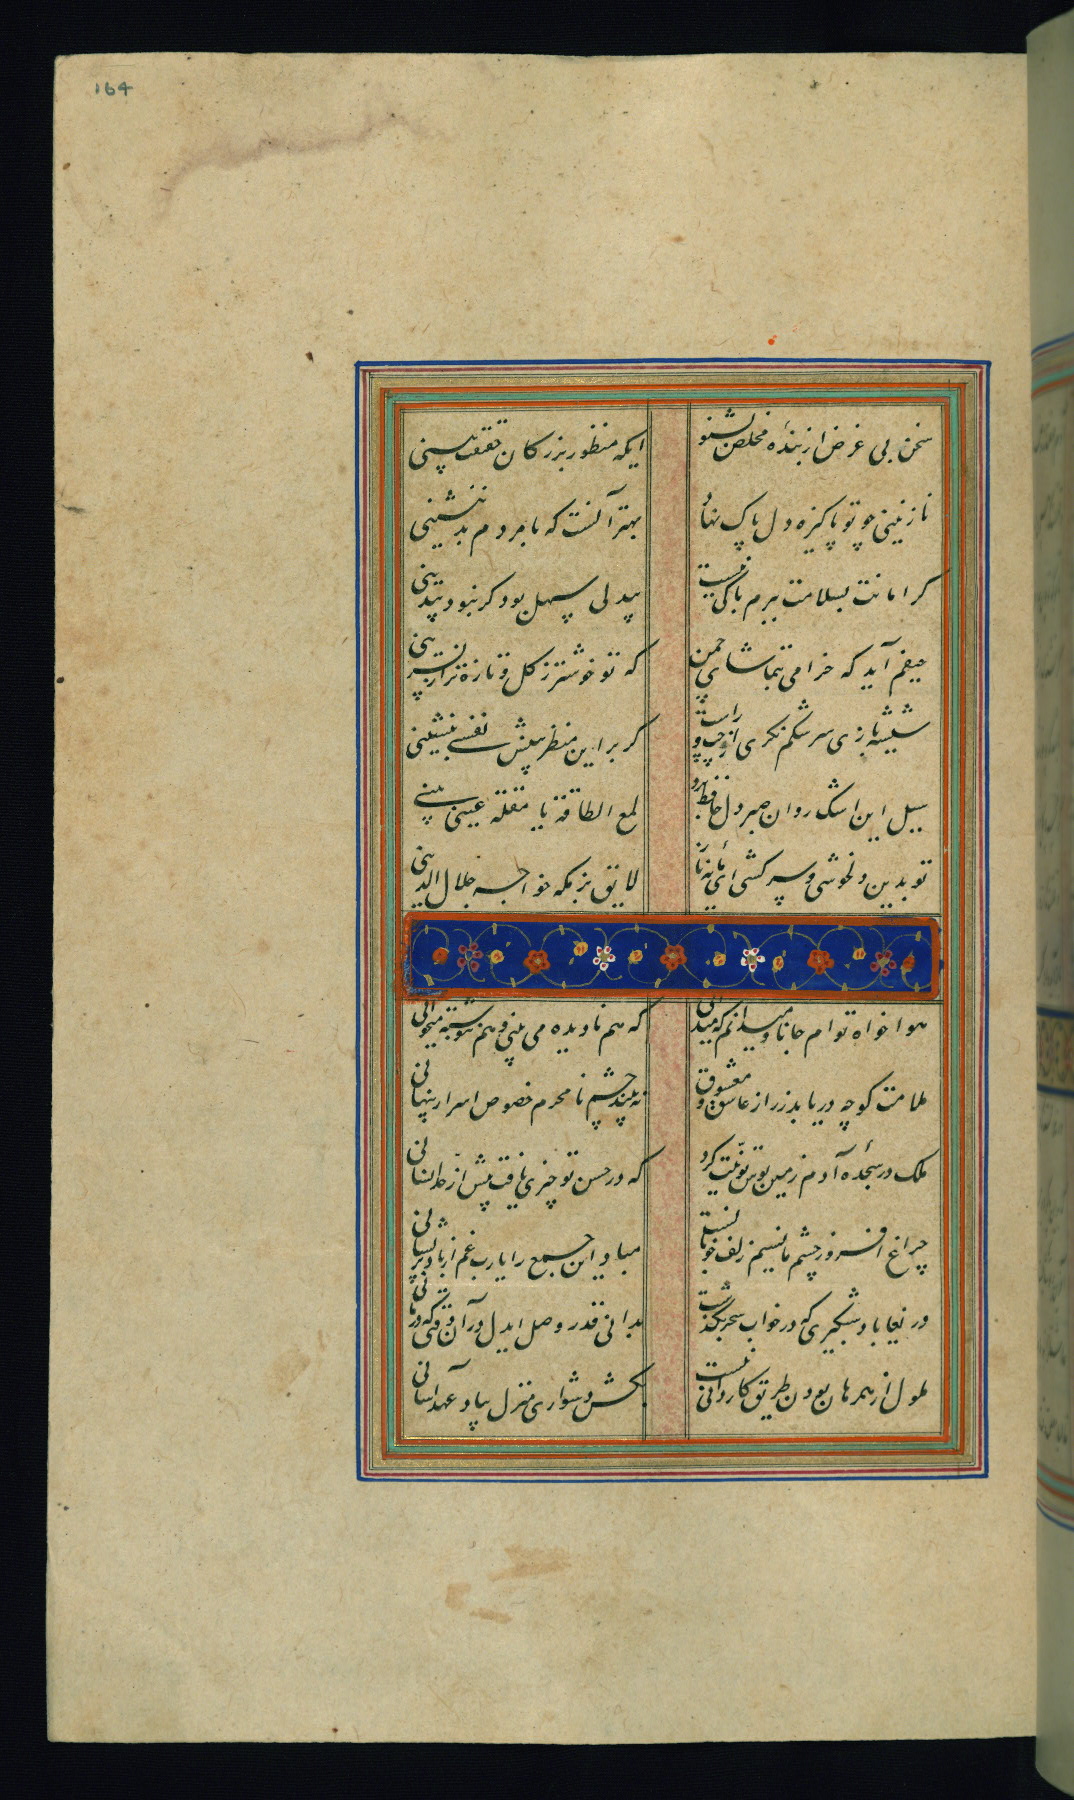 164
سخن بی غرض از بندهٔ مخلص بشنو ایکه منظور بزرکان حقیقت بینی
نازنینی چو تو پاکیزه دل پاک نهاد بهتر آنست که با مردم بد ننشینی
کر امانت بسلامت ببرم باکی نیست بیدلی سهل بود کر نبود بیدینی
حیفم آید که خرامی بتماشای چمن که تو خوشتر ز کل و تازه تر از نسرینی
شیشه بازی سرشکم نکری از چپ و راست کر بر این منظر بینش نفسی بنشینی
سیل این اشک روان صبر دل حافظ برد بلغ الطاقة یا مقلة عینی بینی
تو بدین دلخوشی و سرکشی ای مایهٔ ناز لایق بزمکه خواجه جلال الدینی
هواخواه توام جانا و میدانم که میدانی که هم نادیده می بینی و هم ننوشته میخوانی
ملامت کو چه دریابد ز راز عاشق و معشوق نه بیند چشم نامحرم خصوص اسرار پنهانی
ملک در سجدهٔ آدم زمین بوس تو نیت کرد که در حسن تو چیزی یافت بیش از حد انسانی
چراغ افروز چشم ما نسیم زلف خوبانست مباد این جمع را یارب غم از باد پریشانی
دریغا باد شبکیری که در خواب سحر بکذشت بدانی قدر وصل ایدل در آن وقتی که درمانی
ملول از همرهان بودن طریق کاردانی نیست بکش دشواری منزل بیاد عهد آسانی